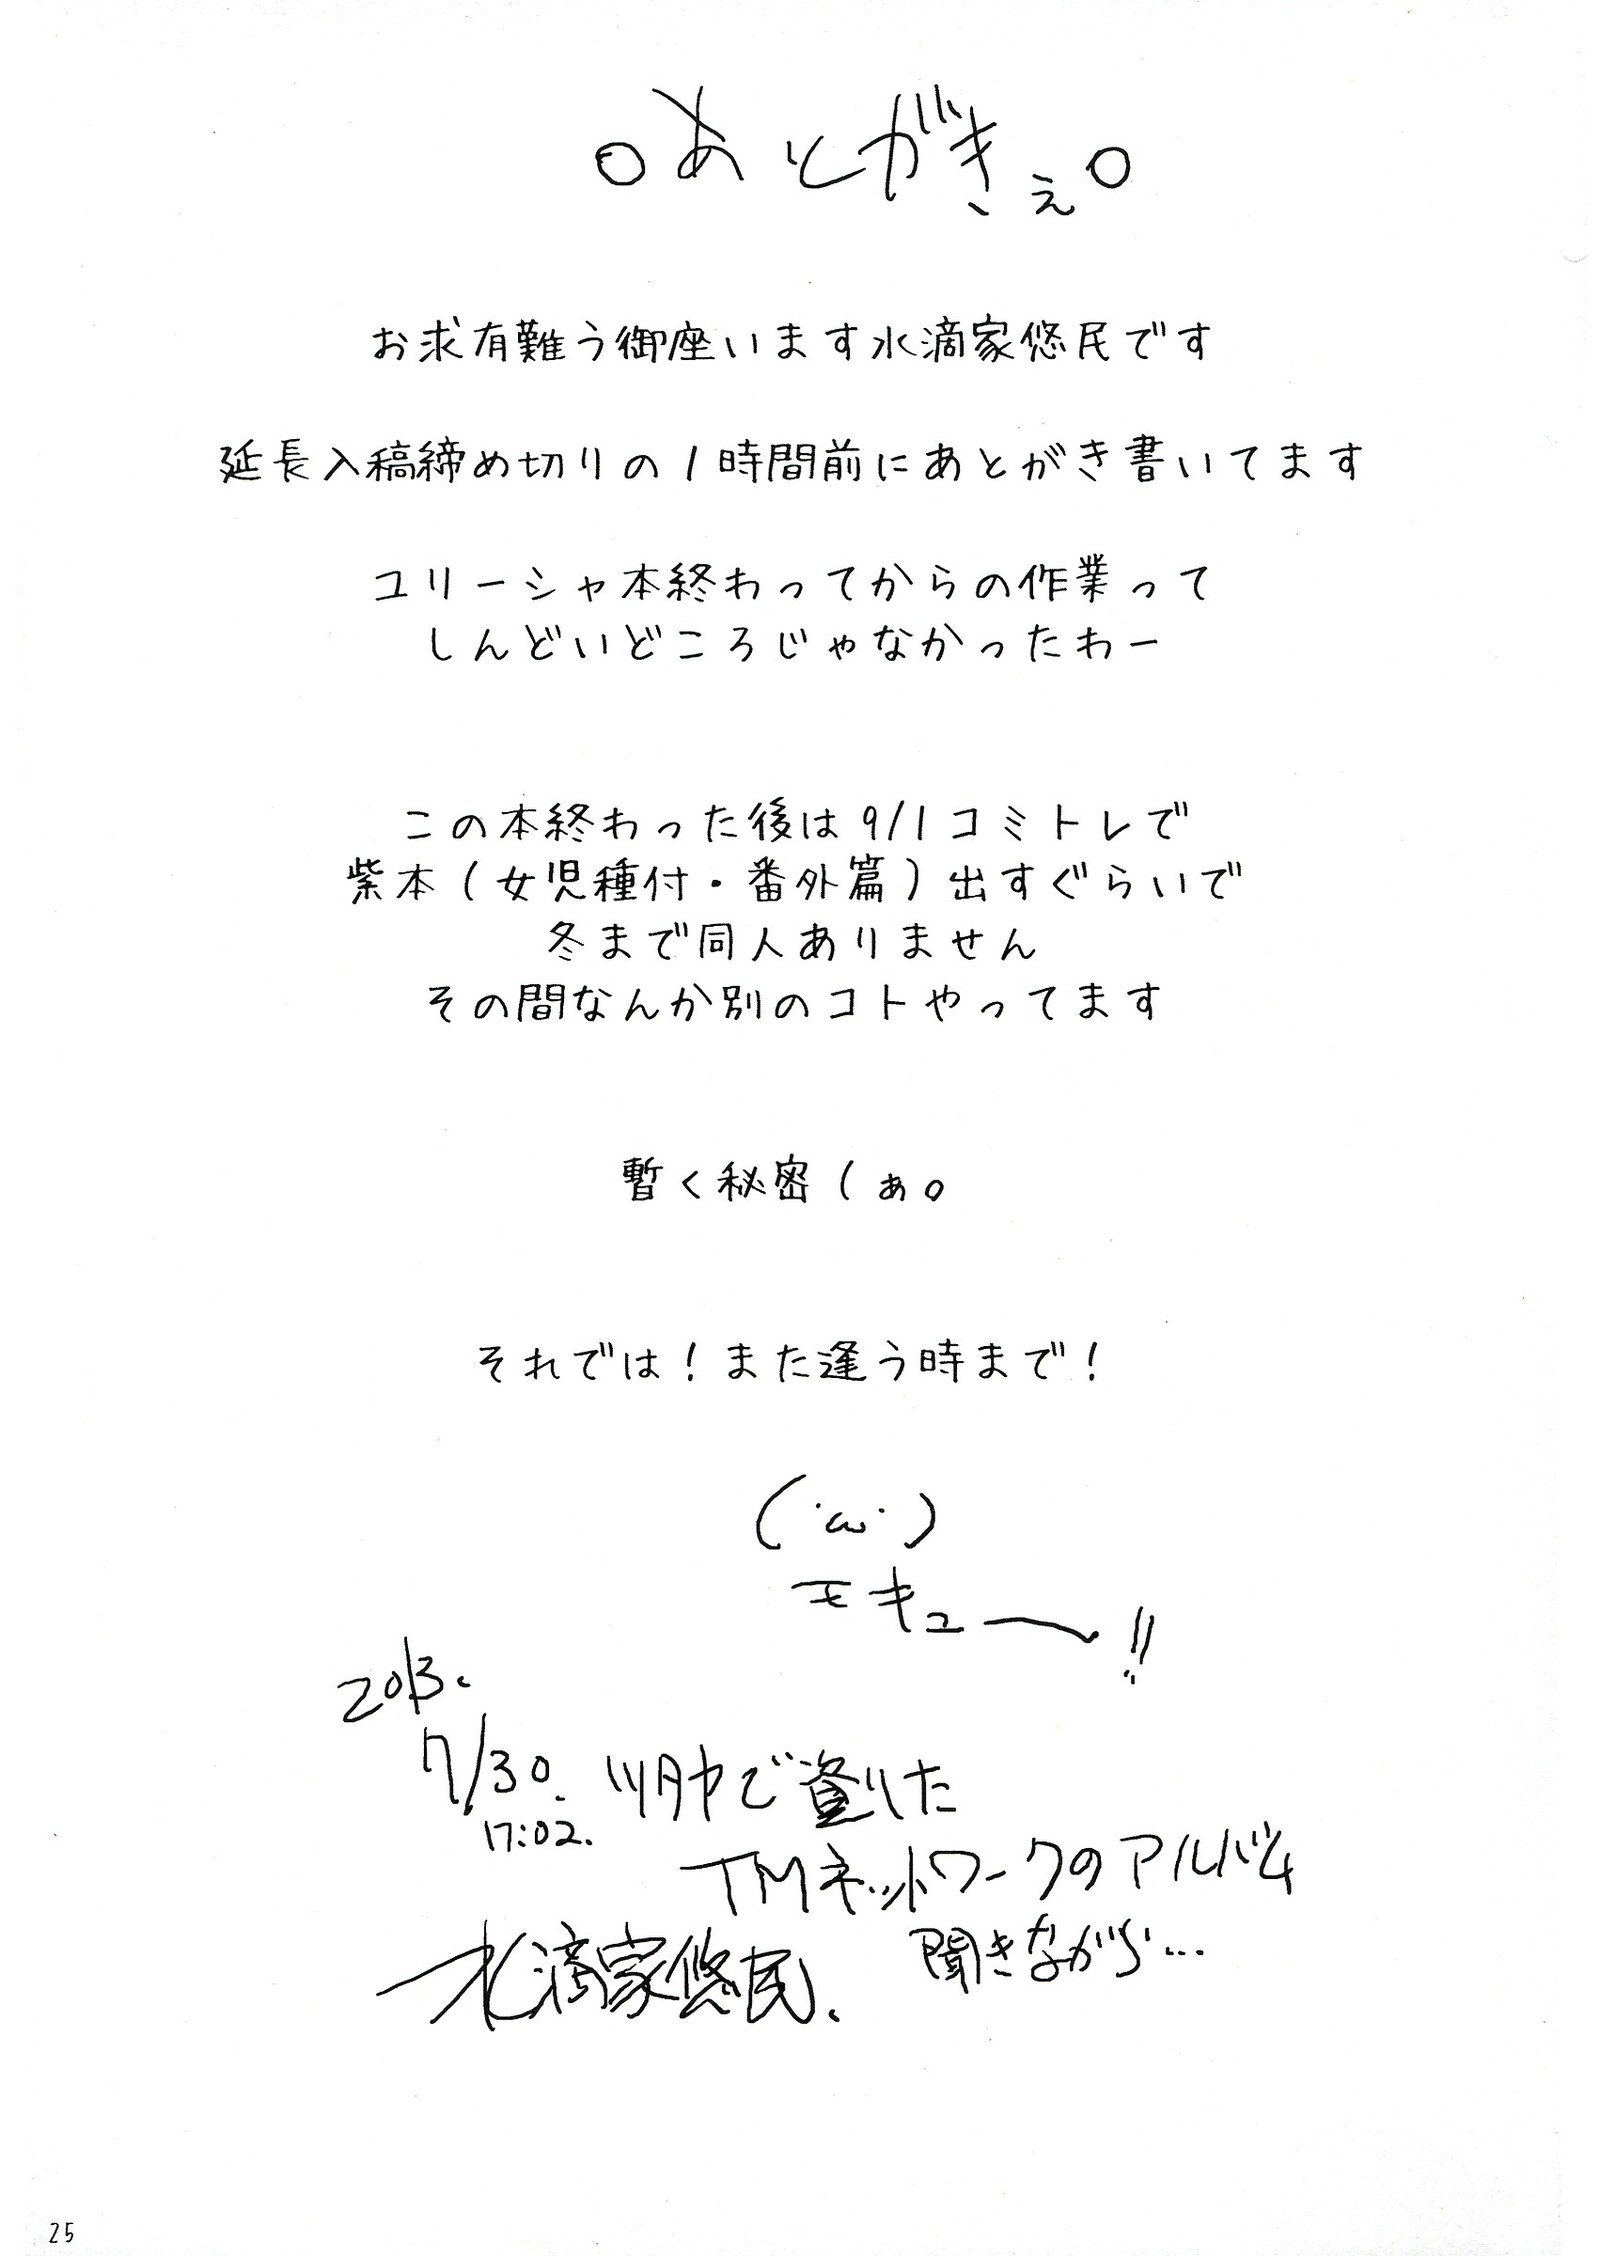 ○あとがきぇ○
お求有難う御座います水滴家悠民です
延長入稿締め切りの1時間前にあとがき書いてます
ユリーシャ本終わってからの作業って
しんどいどころじゃなかったわー
この本終わった後は9/1コミトレで
紫本(女児種付・番外篇)出すぐらいで
冬まで同人ありません
その間なんか別のコトやってます
暫く秘密(ぁ。
それでは!また逢う時まで!
(˙ω˙)
モキュー!!
2013.
7/30.
17:02.
TMネットワークのアルバム
聞きながら…
水滴家悠民.
25